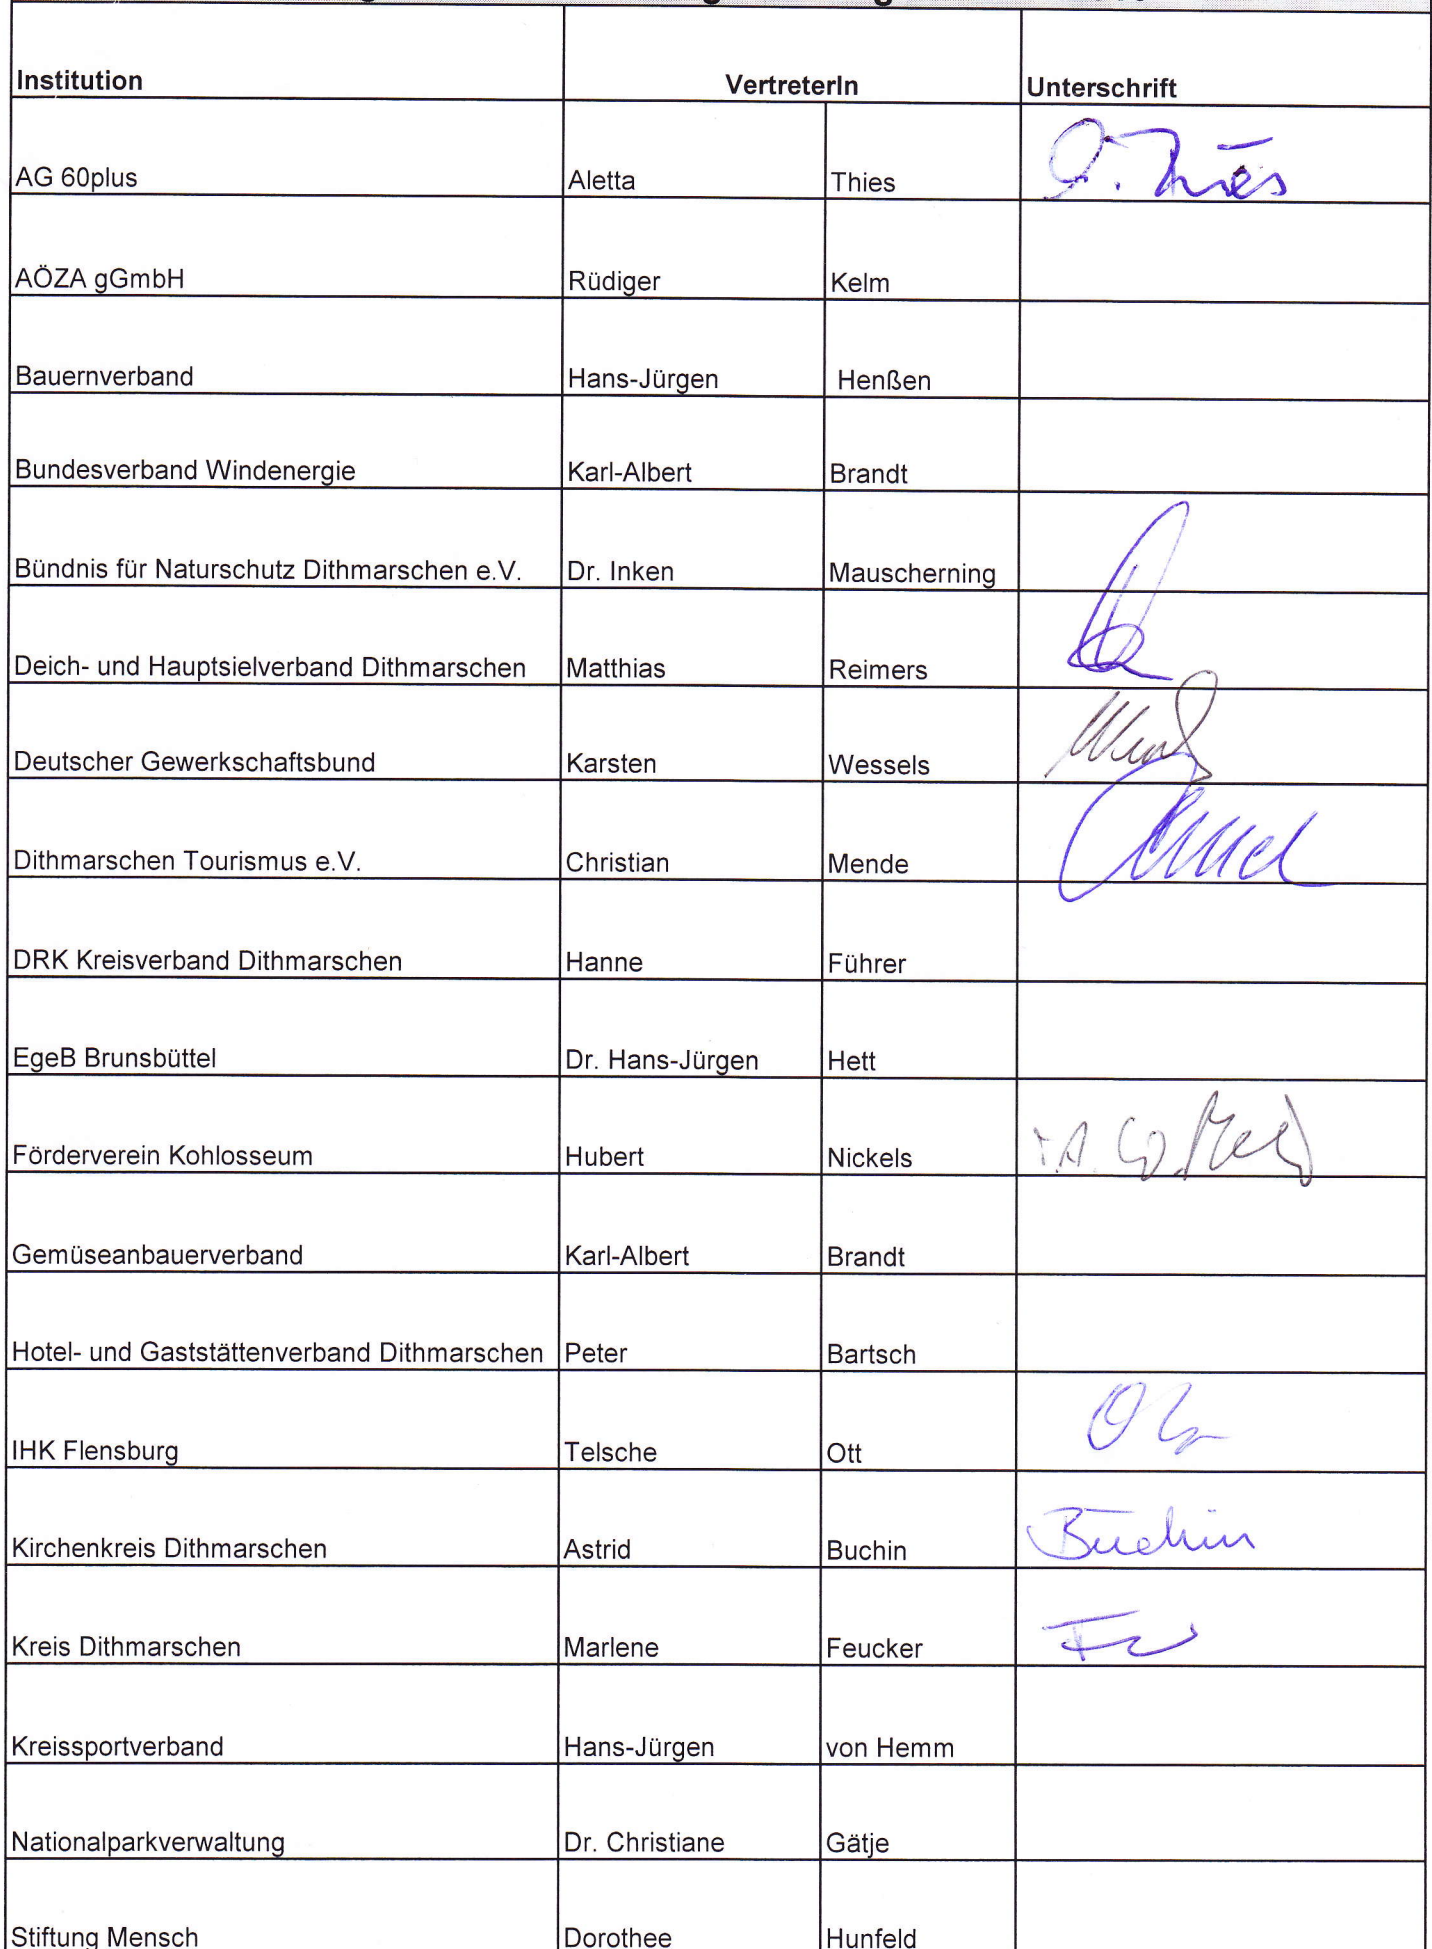 Institution VertreterIn Unterschrift
AG 60plus Aletta Thies A. Thies
AÖZA gGmbH Rüdiger Kelm
Bauernverband Hans-Jürgen Henßen
Bundesverband Windenergie Karl-Albert Brandt
Bündnis für Naturschutz Dithmarschen e.V. Dr. Inken Mauscherning
Deich- und Hauptsielverband Dithmarschen Matthias Reimers
Deutscher Gewerkschaftsbund Karsten Wessels
Dithmarschen Tourismus e.V. Christian Mende
DRK Kreisverband Dithmarschen Hanne Führer
EgeB Brunsbüttel Dr. Hans-Jürgen Hett
Förderverein Kohlosseum Hubert Nickels
Gemüseanbauerverband Karl-Albert Brandt
Hotel- und Gaststättenverband Dithmarschen Peter Bartsch
IHK Flensburg Telsche Ott
Kirchenkreis Dithmarschen Astrid Buchin Buchin
Kreis Dithmarschen Marlene Feucker
Kreissportverband Hans-Jürgen von Hemm
Nationalparkverwaltung Dr. Christiane Gätje
Stiftung Mensch Dorothee Hunfeld